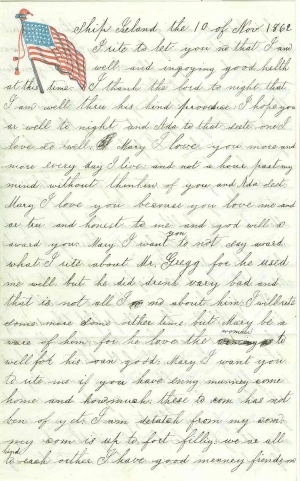 Ship Island the 10 of Nov 1862
I rite to let you no that I am
well and injoying good helth
at this time I thank the lord to night that
I am well threw his kind providince I hope you
ar well to night and Ada to that sele one I
love so well Mary I love you more and
more every day I live and not a houre past my
mind without thinken of you and Ada Dest
Mary I love you because you love me and
ar tru and honest to me and god will a
award you Mary I want you to not say ward
what I rite about Mr. Gregg for he used
me well but he did drink vary bad and
that is not all I no about him I will rite
some more some orther time but Mary be a
ware of him for he love the women to
well for his oan good Mary I want you
to rite me if you have enny munney come
home and how much these to com has not
ben of yet I am detatch from my com
my com is up to fort filley we ar all
kind to each orther I have good menney friends